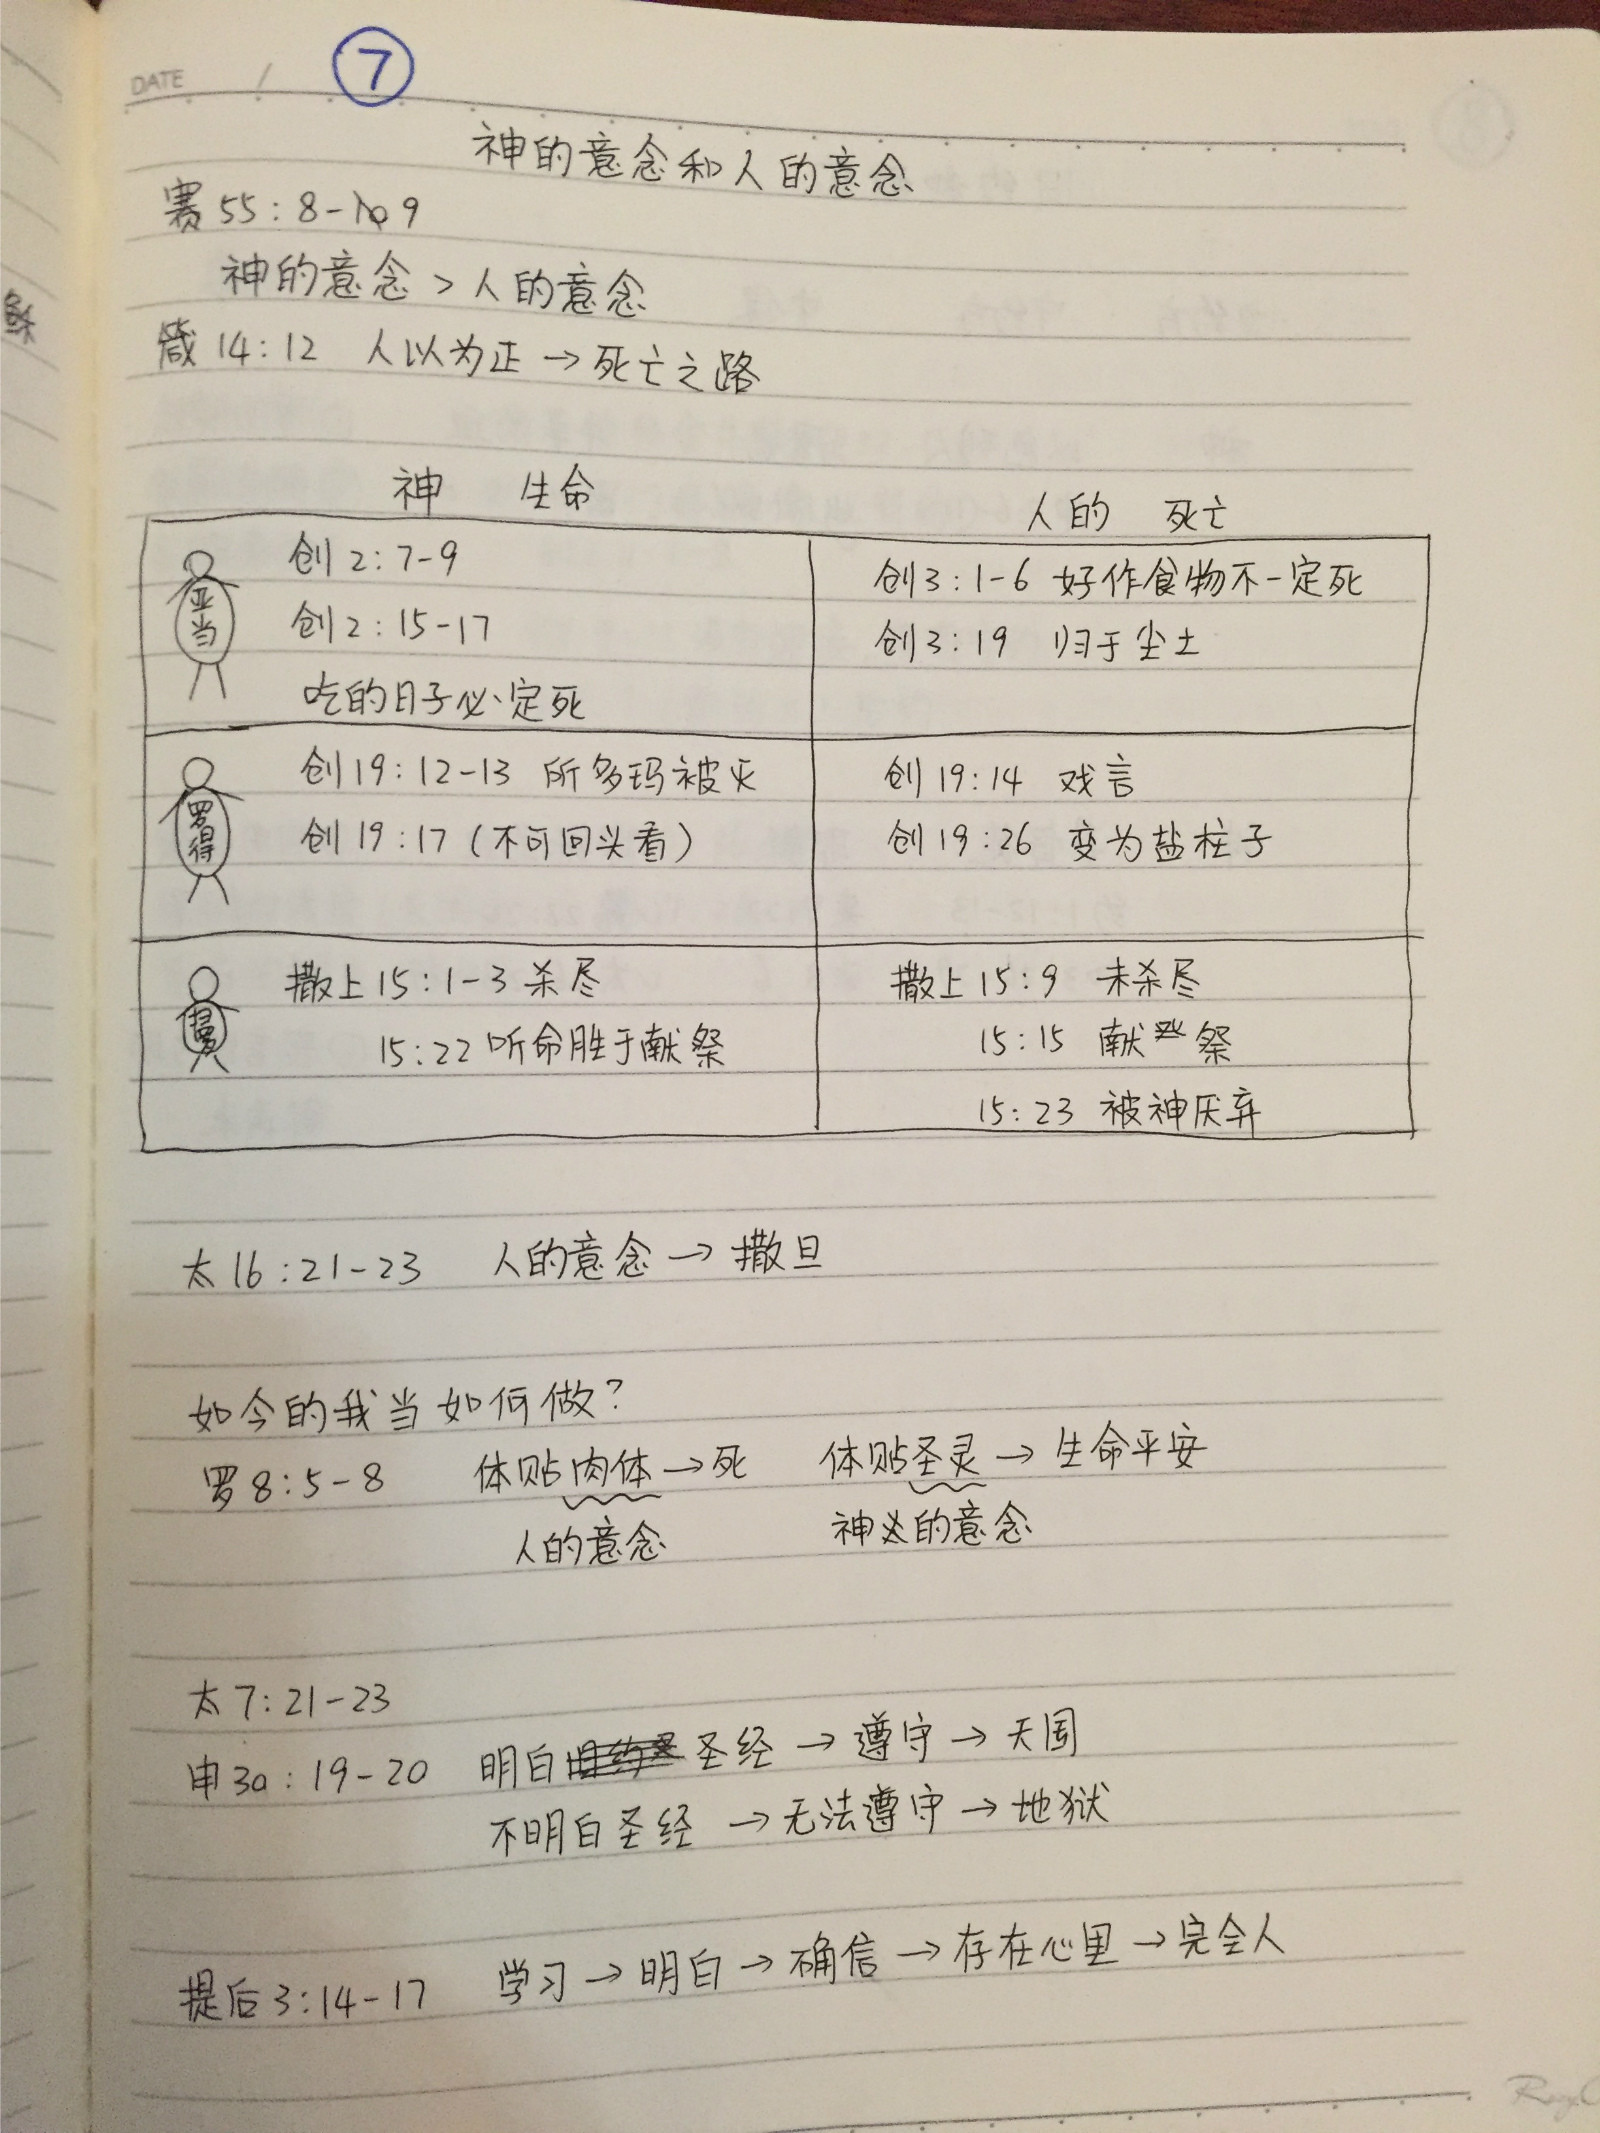 DATE /
7
神的意念和人的意念
赛55:8-9
神的意念>人的意念
箴14:12 人以为正→死亡之路
神 生命
人的 死亡
亚当
创2:7-9
创2:15-17
吃的日子必定死
创3:1-6 好作食物不一定死
创3:19 归于尘土
罗得
创19:12-13 所多玛被灭
创19:17(不可回头看)
创19:14 戏言
创19:26 变为盐柱子
撒上15:1-3 杀尽
15:22 听命胜于献祭
撒上15:9 未杀尽
15:15 献祭
15:23 被神厌弃
太16:21-23 人的意念→撒旦
如今的我当如何做?
罗8:5-8 体贴肉体→死 体贴圣灵→生命平安
人的意念 神的意念
太7:21-23
申30:19-20 明白圣经→遵守→天国
不明白圣经→无法遵守→地狱
提后3:14-17 学习→明白→确信→存在心里→完全人
稣